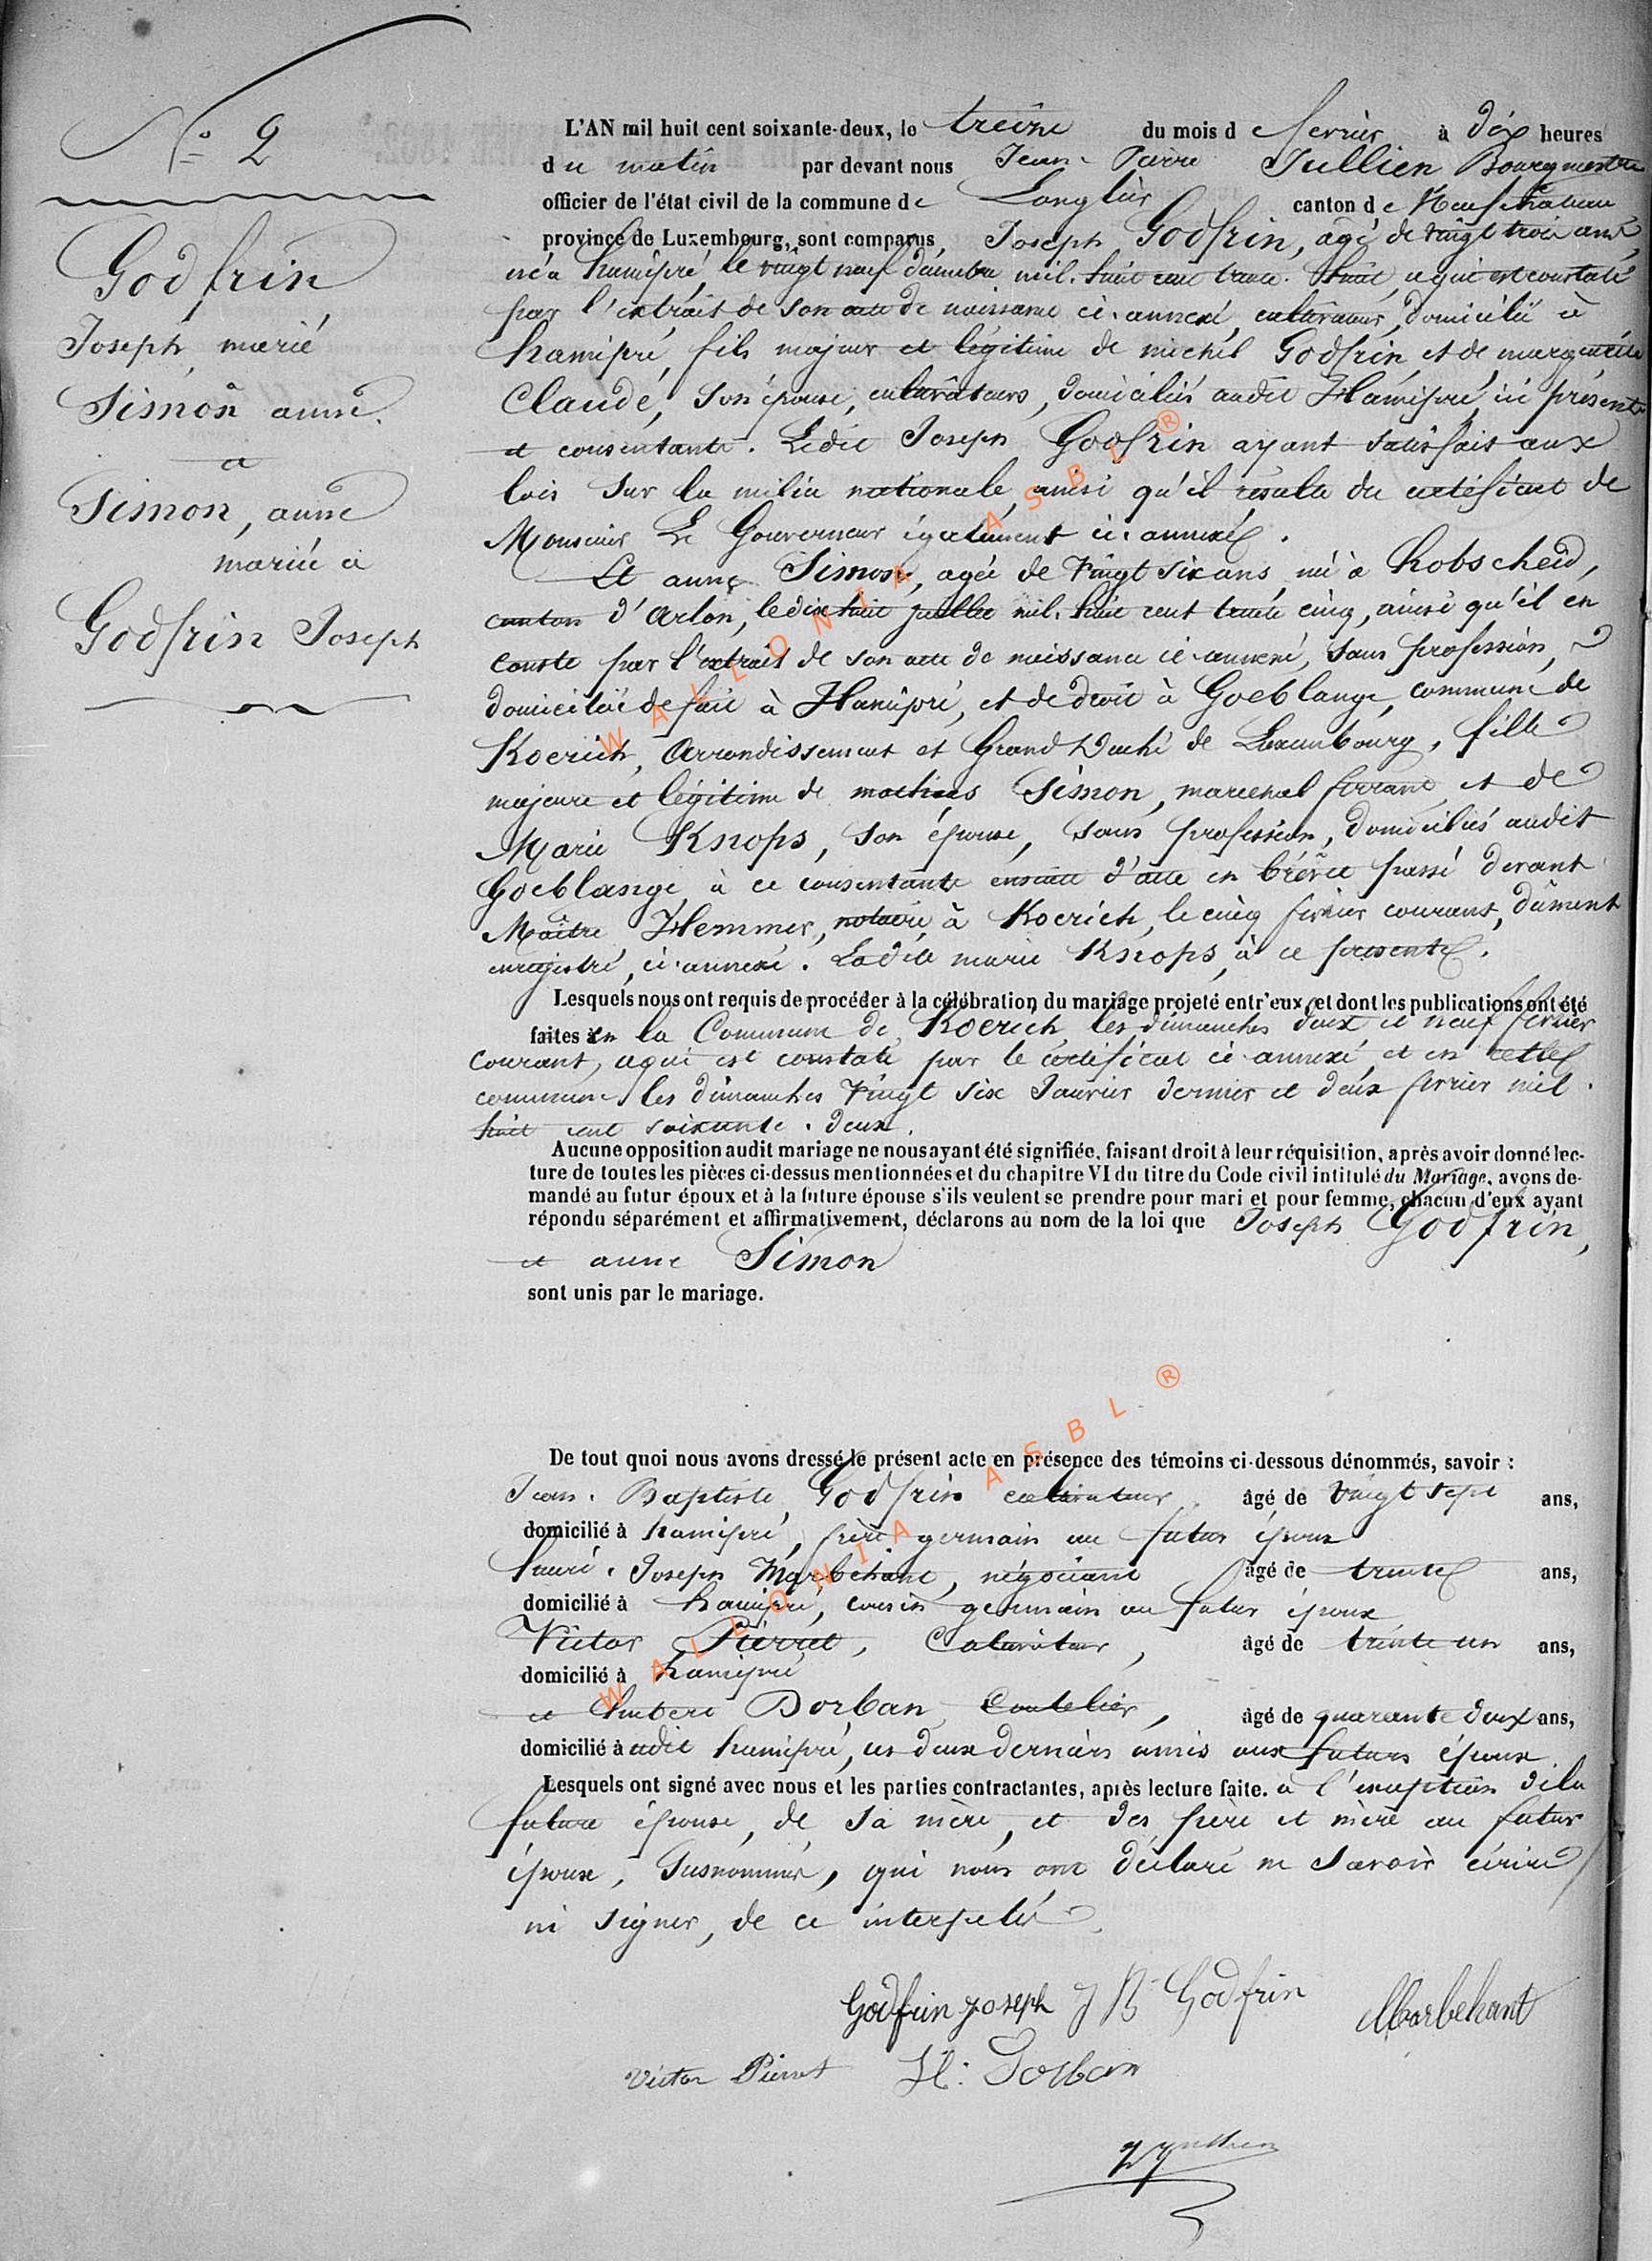 N° 2
Godfrin
Joseph, marié
Simon anne
a
Simon, anne
mariée à
Godfrin Joseph
L'AN mil huit cent soixante-deux, le treize du mois de fevrier à dix heures
du matin par devant nous Jean-Pierre Jullien Bourgmestre
officier de l'état civil de la commune de Longlier canton de Neufchateau
province de Luxembourg, sont comparus, Joseph Godfrin, âgé de vingt trois ans,
né à hamipré, le vingt neuf décembre mil-huit cent trente-huit, ce qui est constaté
par l'extrait de son acte de naissance ci-annexé, cultivateur, domicilié à
hamipré, fils majeur et légitime de michel Godfrin, et de marguerite
Claude, son épouse, cultivateurs, domiciliés audit Hamipré, ici présents
et consentants. Ledit Joseph Godfrin ayant satisfait aux
lois sur la milice nationale, ainsi qu'il résulte du certificat de
Monsieur Le Gouverneur également ci-annexé.
Et anne Simon, agée de vingt six ans, née à hobscheid,
canton d'Arlon, le dix huit juillet mil-huit cent trente cinq, ainsi qu'il en
conste par l'extrait de son acte de naissance ci-annexé, sans profession,
domiciliée de fait à Hamipré, et de droit à Goeblange, commune de
Koerich, Arrondissement et Grand Duché de Luxembourg, fille
majeure et légitime de mathias Simon, marechal ferrant, et de
Marie Knops, son épouse, sans profession, domiciliés audit
Goeblange à ce consentants ensuite d'acte en brévet passé devant
Maître Hemmer, notaire à Koerich, le cinq fevrier courant, dûment
enregistré, ci-annexé. Ladite marie Knops, à ce presente.
Lesquels nous ont requis de procéder à la célébration du mariage projeté entr'eux, et dont les publications ont été
faites en la Commune de Koerich, les dimanches deux et neuf fevrier
courant, ce qui est constaté par le certificat ci-annexé, et en cette
commune les dimanches vingt six Janvier dernier et deux fevrier mil-
huit cent soixante-deux.
Aucune opposition audit mariage ne nous ayant été signifiée, faisant droit à leur réquisition, après avoir donné lec-
ture de toutes les pièces ci-dessus mentionnées et du chapitre VI du titre du Code civil intitulé du Mariage, avons de-
mandé au futur époux et à la future épouse s'ils veulent se prendre pour mari et pour femme, chacun d'eux ayant
répondu séparément et affirmativement, déclarons au nom de la loi que Joseph Godfrin,
et anne Simon
sont unis par le mariage.
De tout quoi nous avons dressé le présent acte en présence des témoins ci-dessous dénommés, savoir :
Jean-Baptiste Godfrin cultivateur, âgé de vingt sept ans,
domicilié à hamipré, frère germain au futur époux
henri-Joseph Marbehant, négociant âgé de trente ans,
domicilié à hamipré, cousin germain au futur époux
Victor Pierret, Cultivateur, âgé de trente un ans,
domicilié à hamipré
et hubert Dorban Coutelier, âgé de quarante deux ans,
domicilié à audit hamipré, ces deux derniers amis aux futurs époux.
Lesquels ont signé avec nous et les parties contractantes, après lecture faite. à l'exception de la
future épouse, de sa mère, et des père et mère au futur
époux, susnommés, qui nous ont déclaré ne savoir écrire
ni signer, de ce interpelés.
Godfrin Joseph J B Godfrin Marbehant
Victor Pierret H: Dorban
WALLONIA ASBL ®
WALLONIA ASBL ®